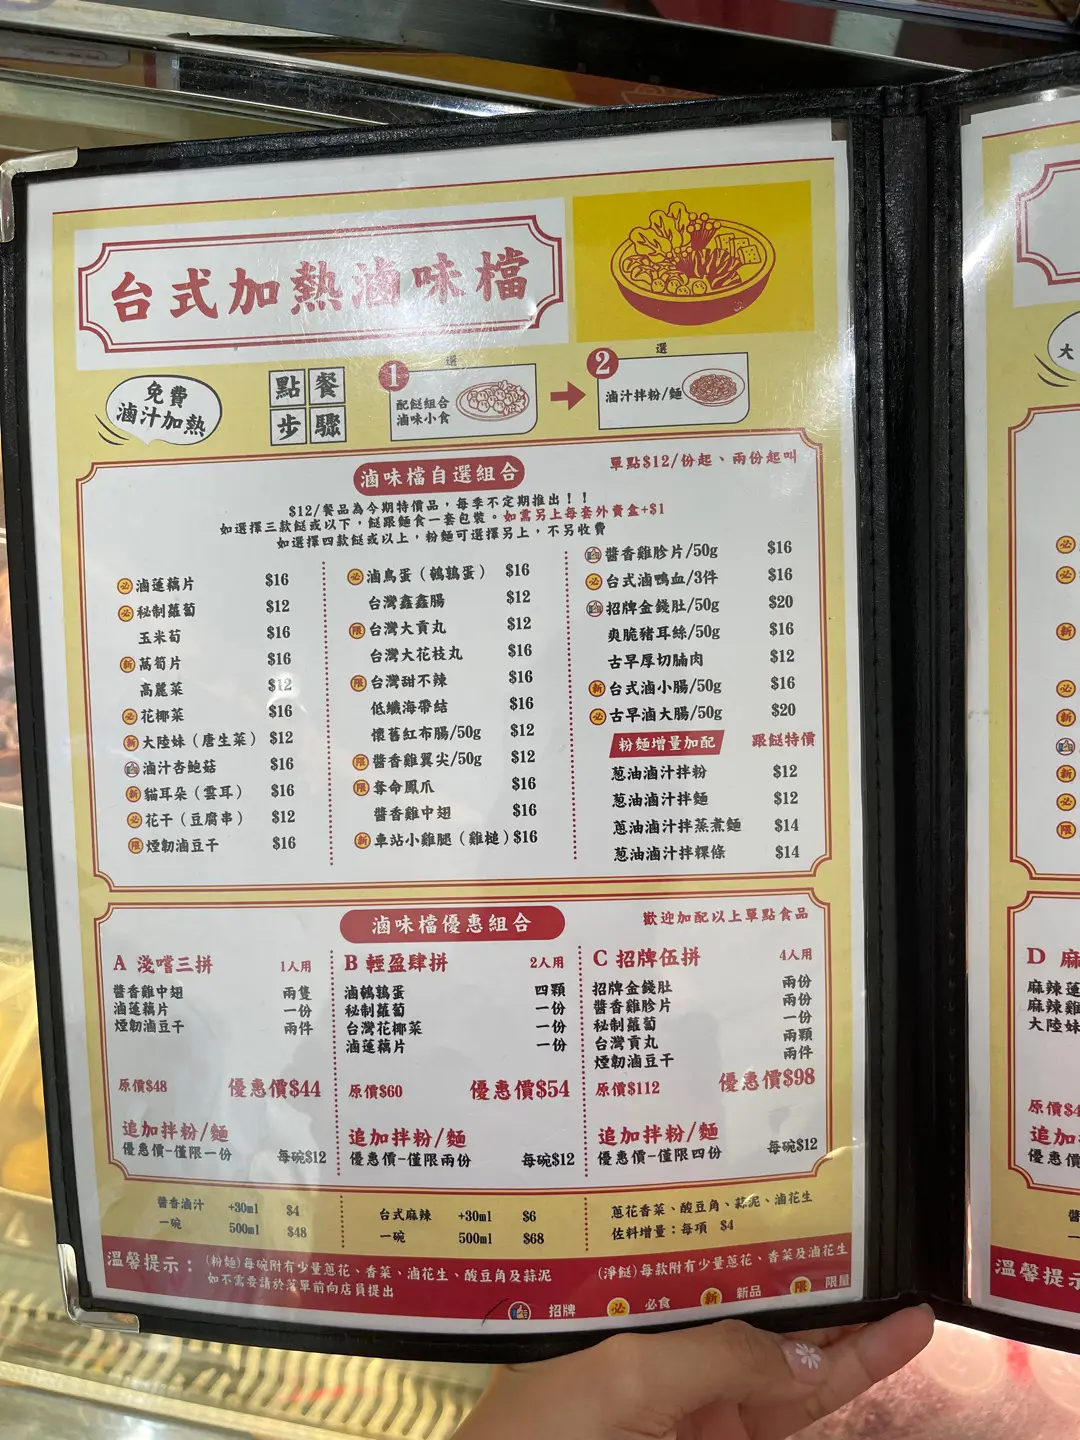 台式加熱滷味檔
免費
滷汁加熱
點餐
步驟
1
選
配餸組合
滷味小食
2
選
滷汁拌粉/麵
滷味檔自選組合
單點$12/份起、兩份起叫
$12/餐品為今期特價品,每季不定期推出!!
如選擇三款餸或以下,餸跟麵食一套包裝。如需另上每套外賣盒+$1
如選擇四款餸或以上,粉麵可選擇另上,不另收費
必 滷蓮藕片 $16
必 秘制蘿蔔 $12
玉米荀 $16
新 萵筍片 $16
高麗菜 $12
必 花椰菜 $16
新 大陸妹(唐生菜) $12
滷汁杏鮑菇 $16
新 貓耳朵(雲耳) $16
必 花干(豆腐串) $12
限 煙韌滷豆干 $16
必 滷鳥蛋(鵪鶉蛋) $16
台灣鑫鑫腸 $12
限 台灣大貢丸 $12
台灣大花枝丸 $16
限 台灣甜不辣 $16
低纖海帶結 $16
懷舊紅布腸/50g $12
限 醬香雞翼尖/50g $12
限 奪命鳳爪 $16
醬香雞中翅 $16
新 車站小雞腿(雞槌) $16
醬香雞胗片/50g $16
必 台式滷鴨血/3件 $16
招牌金錢肚/50g $20
爽脆豬耳絲/50g $16
古早厚切腩肉 $12
新 台式滷小腸/50g $16
必 古早滷大腸/50g $20
粉麵增量加配 跟餸特價
蔥油滷汁拌粉 $12
蔥油滷汁拌麵 $12
蔥油滷汁拌蒸煮麵 $14
蔥油滷汁拌粿條 $14
滷味檔優惠組合
歡迎加配以上單點食品
A 淺嚐三拼 1人用
醬香雞中翅 兩隻
滷蓮藕片 一份
煙韌滷豆干 兩件
原價$48 優惠價$44
追加拌粉/麵
優惠價-僅限一份 每碗$12
B 輕盈肆拼 2人用
滷鵪鶉蛋 四顆
秘制蘿蔔 一份
台灣花椰菜 一份
滷蓮藕片 一份
原價$60 優惠價$54
追加拌粉/麵
優惠價-僅限兩份 每碗$12
C 招牌伍拼 4人用
招牌金錢肚 兩份
醬香雞胗片 兩份
秘制蘿蔔 一份
台灣貢丸 兩顆
煙韌滷豆干 兩件
原價$112 優惠價$98
追加拌粉/麵
優惠價-僅限四份 每碗$12
醬香滷汁 +30ml $4
一碗 500ml $48
台式麻辣 +30ml $6
一碗 500ml $68
蔥花香菜、酸豆角、蒜泥、滷花生
佐料增量:每項 $4
溫馨提示:
(粉麵)每碗附有少量蔥花、香菜、滷花生、酸豆角及蒜泥
如不需要請於落單前向店員提出
(淨餸)每款附有少量蔥花、香菜及滷花生
招牌
必 必食
新 新品
限 限量
大
必
必
新
必
新
新
必
限
D 麻
麻辣蓮
麻辣雞
大陸妹
原價$4
追加
優惠價
溫馨提示